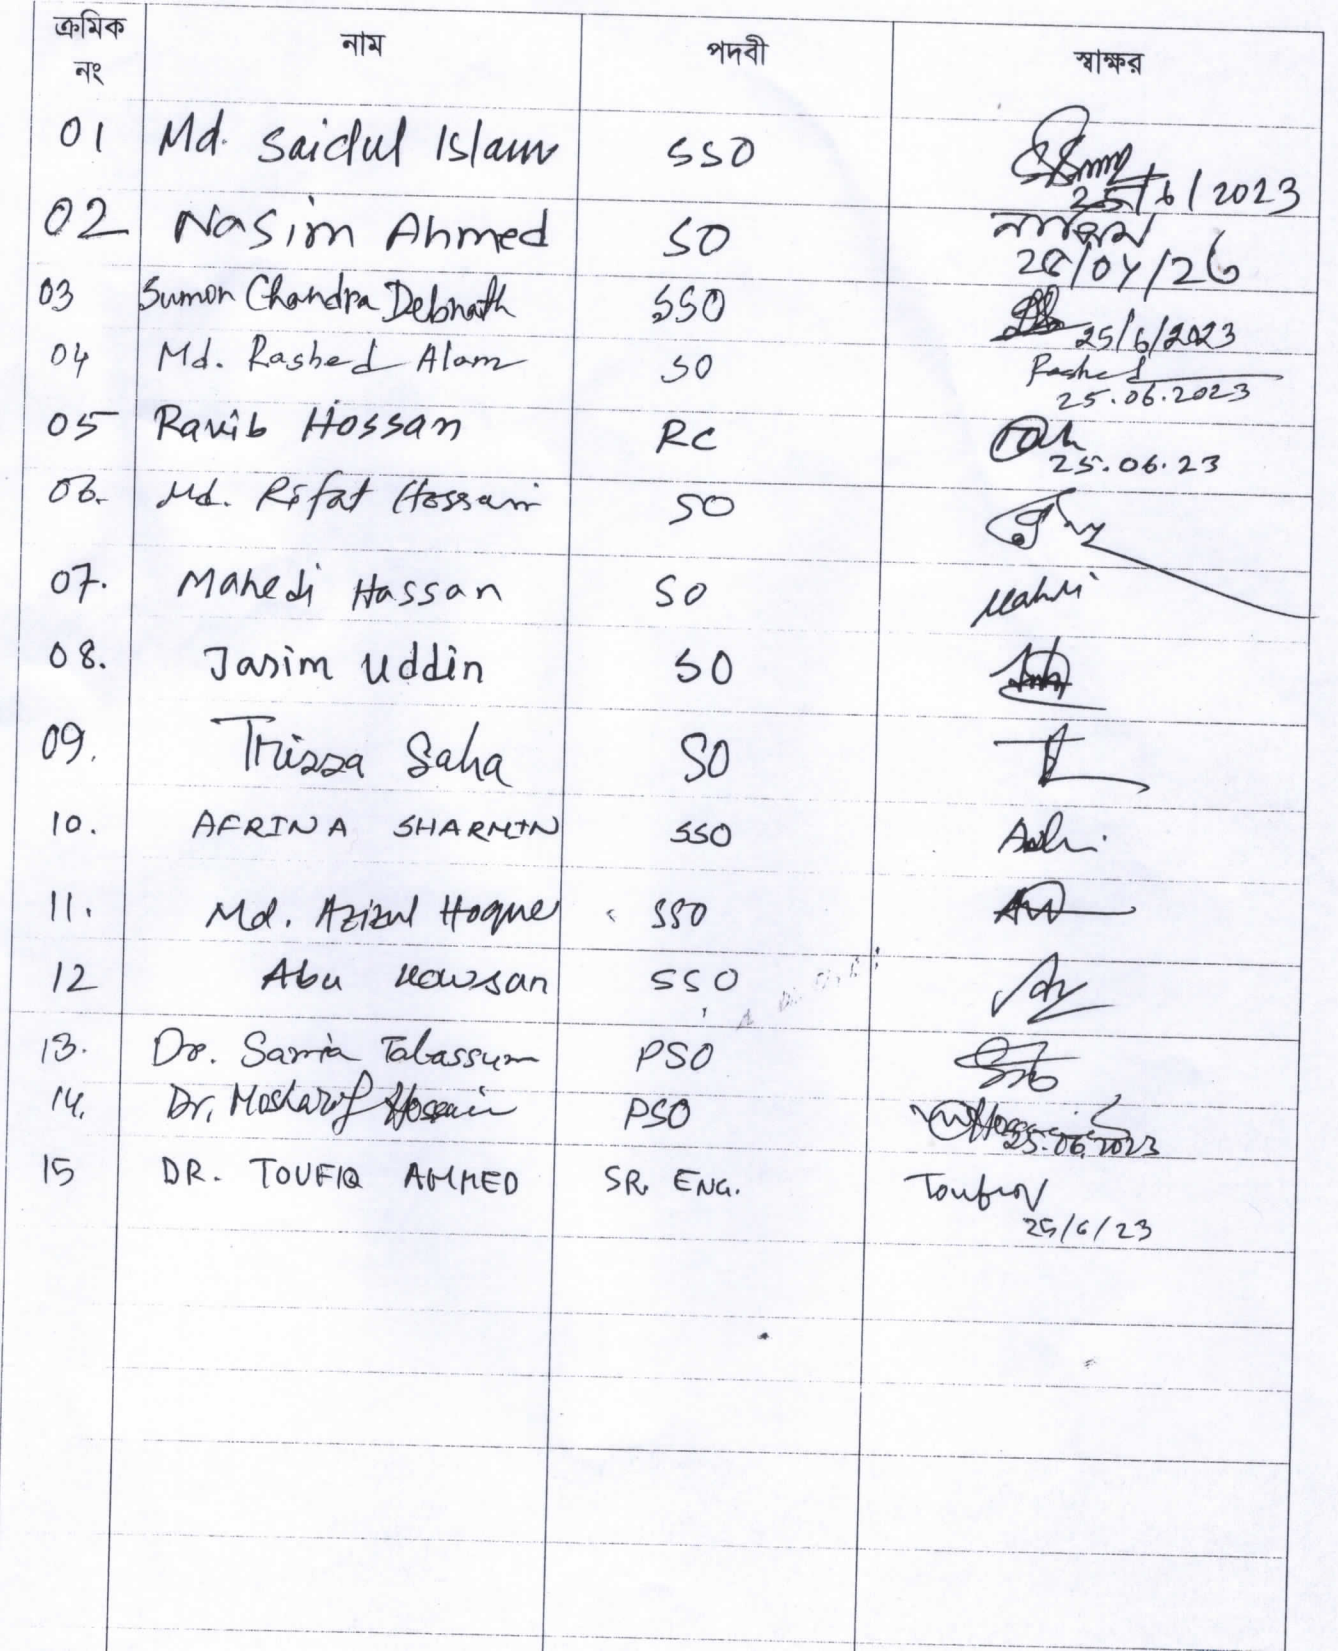 ক্রমিক নং নাম পদবী স্বাক্ষর
01 Md. Saidul Islam SSO
25/6/2023
02 Nasim Ahmed SO নাসিম
03 Sumon Chandra Debnath SSO
25/6/2023
04 Md. Rashed Alam SO Rashed
25.06.2023
05 Rakib Hossan RC
25.06.23
06. Md. Rifat Hossain SO
07. Mahedi Hassan SO Mahdi
08. Jasim Uddin SO
09. Trissa Saha SO
10. AFRINA SHARMIN SSO
11. Md. Azizul Hoque SSO
12 Abu Kowsar SSO
13. Dr. Samia Tabassum PSO
14. Dr. Mosharof Hossain PSO
25.06.2023
15 DR. TOUFIQ AHMED SR. ENG. Toufiq
25/6/23